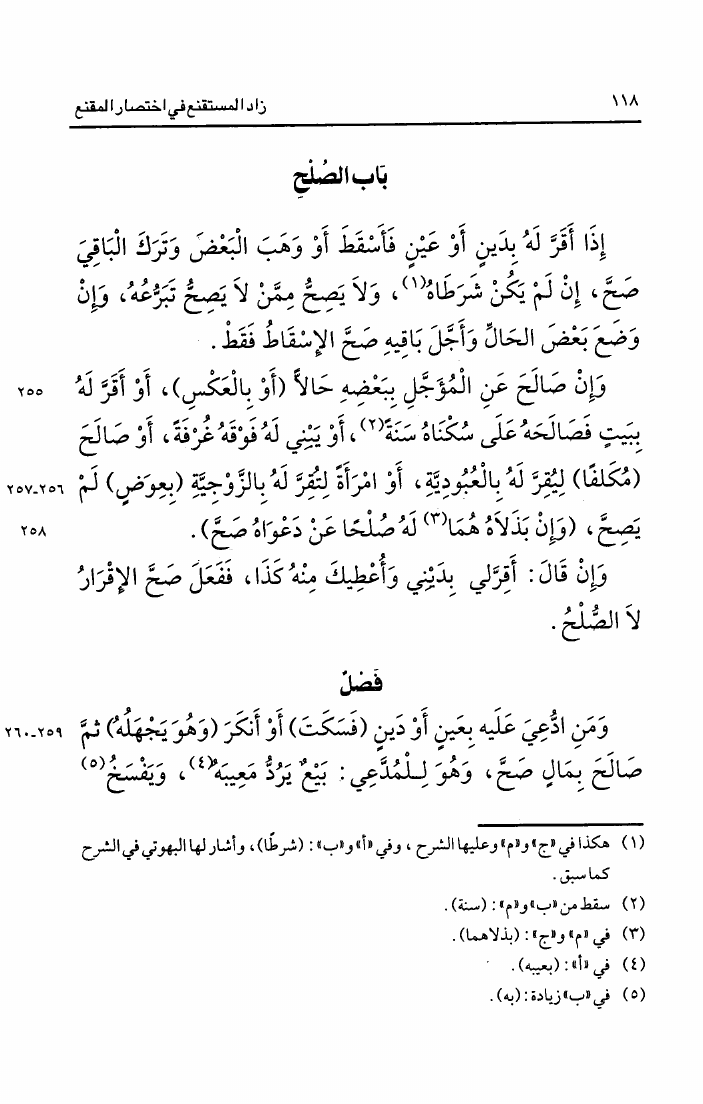 ١١٨ زاد المستقنع في اختصار المقنع
بَاب الصُلْحِ
إِذَا أَقَرَّ لَهُ بِدَينٍ أَوْ عَيْنٍ فَأَسْقَطَ أَوْ وَهَبَ الْبَعْضَ وَتَرَكَ الْبَاقِيَ
صَحَّ، إِنْ لَمْ يَكُنْ شَرَطَاهُ(١)، وَلاَ يَصِحُّ مِمَّنْ لاَ يَصِحُّ تَبَرُّعُهُ، وَإِنْ
وَضَعَ بَعْضَ الحَالِّ وَأَجَّلَ بَاقِيهِ صَحَّ الإِسْقَاطُ فَقَطْ.
وَإِنْ صَالَحَ عَنِ الْمُؤَجَّلِ بِبَعْضِهِ حَالاًّ (أَوْ بِالْعَكْسِ)، أَوْ أَقَرَّ لَهُ ٢٥٥
بِبَيتٍ فَصَالَحَهُ عَلَى سُكْنَاهُ سَنَةً(٢)، أَوْ يَبْنِي لَهُ فَوْقَهُ غُرْفَةً، أَوْ صَالَحَ
(مُكَلفًا) لِيُقِرَّ لَهُ بِالْعُبُودِيَّةِ، أَوْ امْرَأَةً لِتُقِرَّ لَهُ بِالزَّوْجِيَّةِ (بِعِوَضٍ) لَمْ ٢٥٦-٢٥٧
يَصِحَّ، (وَإِنْ بَذَلاَهُ هُمَا(٣) لَهُ صُلْحًا عَنْ دَعْوَاهُ صَحَّ). ٢٥٨
وَإِنْ قَالَ: أَقِرَّلي بِدَيْنِي وَأُعْطِيكَ مِنْهُ كَذَا، فَفَعَلَ صَحَّ الإِقْرَارُ
لاَ الصُّلْحُ.
فَصْلٌ
وَمَنِ ادُّعِيَ عَلَيه بِعَينٍ أَوْ دَينٍ (فَسَكَتَ) أَوْ أَنكَرَ (وَهُوَ يَجْهَلُهُ) ثمَّ ٢٥٩-٢٦٠
صَالَحَ بِمَالٍ صَحَّ، وَهُوَ لِلْمُدَّعِي: بَيْعٌ يَرُدُّ مَعِيبَهُ(٤)، وَيَفْسَخُ(٥)
(١) هكذا في «ج» و«م» وعليها الشرح، وفي «أ» و«ب»: (شرطًا)، وأشار لها البهوتي في الشرح
كما سبق.
(٢) سقط من «ب» و«م»: (سنة).
(٣) في «م» و«ج»: (بذلاهما).
(٤) في «أ»: (بعيبه).
(٥) في «ب» زيادة: (به).